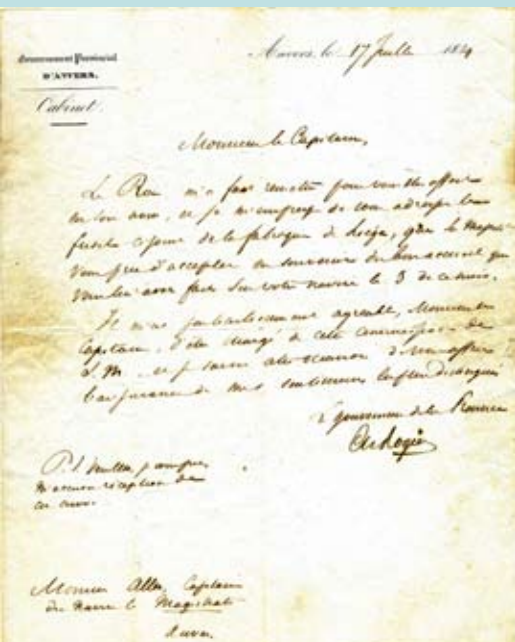 Gouvernement Provincial
D'ANVERS.
Cabinet.
Anvers, le 17 Juillet 1834
Monsieur le Capitaine,
Le Roi m'a fait remettre pour vous être offert
en son nom, et je m'empresse de vous adresser
fusil de la fabrique de Liège, que Sa Majesté
vous prie d'accepter en souvenir de l'accueil que
vous lui avez fait sur votre navire le 3 de ce mois.
Il m'est particulièrement agréable, Monsieur le
Capitaine, d'être chargé de cette commission de
S. M. et je saisis cette occasion de vous offrir
l'assurance de mes sentiments les plus distingués
Le gouverneur de la Province
Ch. Rogier
P.S. Veuillez
m'accuser réception de
cet envoi.
Monsieur Allen, Capitaine
du Navire le Magistrate
Anvers